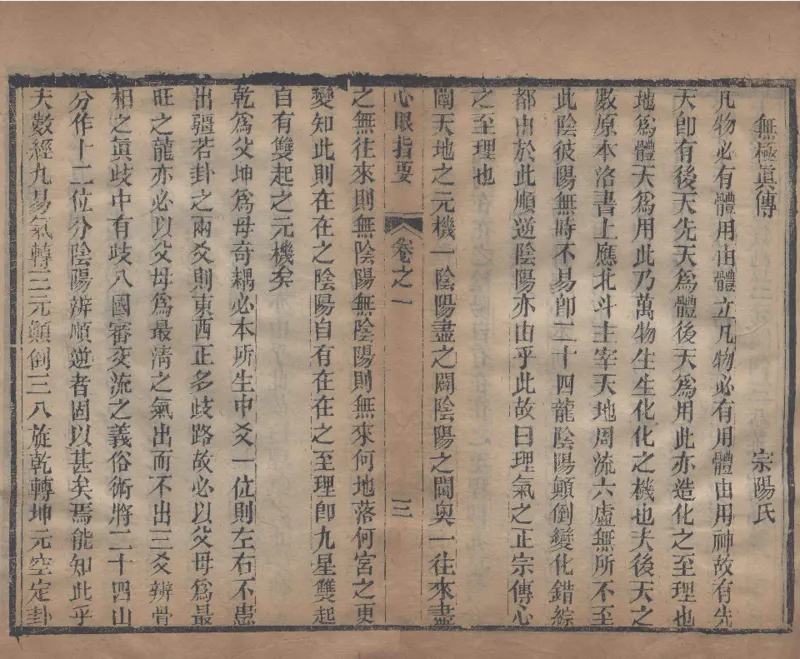 無極眞傳 宗陽氏
凡物必有體用由體立凡物必有用體由用神故有先
天卽有後天先天爲體後天爲用此亦造化之至理也
地爲體天爲用此乃萬物生生化化之機也夫後天之
數原本洛書上應北斗主宰天地周流六虛無所不至
此陰彼陽無時不易卽二十四龍陰陽顚倒變化錯綜
都由於此順逆陰陽亦由乎此故曰理氣之正宗傳心
之至理也
闡天地之元機一陰陽盡之闢陰陽之閫奧一往來盡
心眼指要 卷之一 三
之無往來則無陰陽無陰陽則無來何地落何宮之更
變知此則在在之陰陽自有在在之至理卽九星雙起
自有雙起之元機矣
乾爲父坤爲母奇耦必本所生中爻一位則左右不患
出疆若卦之兩爻則東西正多歧路故必以父母爲最
旺之龍亦必以父母爲最淸之氣出而不出三爻辨骨
相之眞歧中有歧八國審交流之義俗術將二十四山
分作十二位分陰陽辨順逆者固以甚矣焉能知此乎
大數經九易氣轉三元顚倒三八旋乾轉坤元空定卦